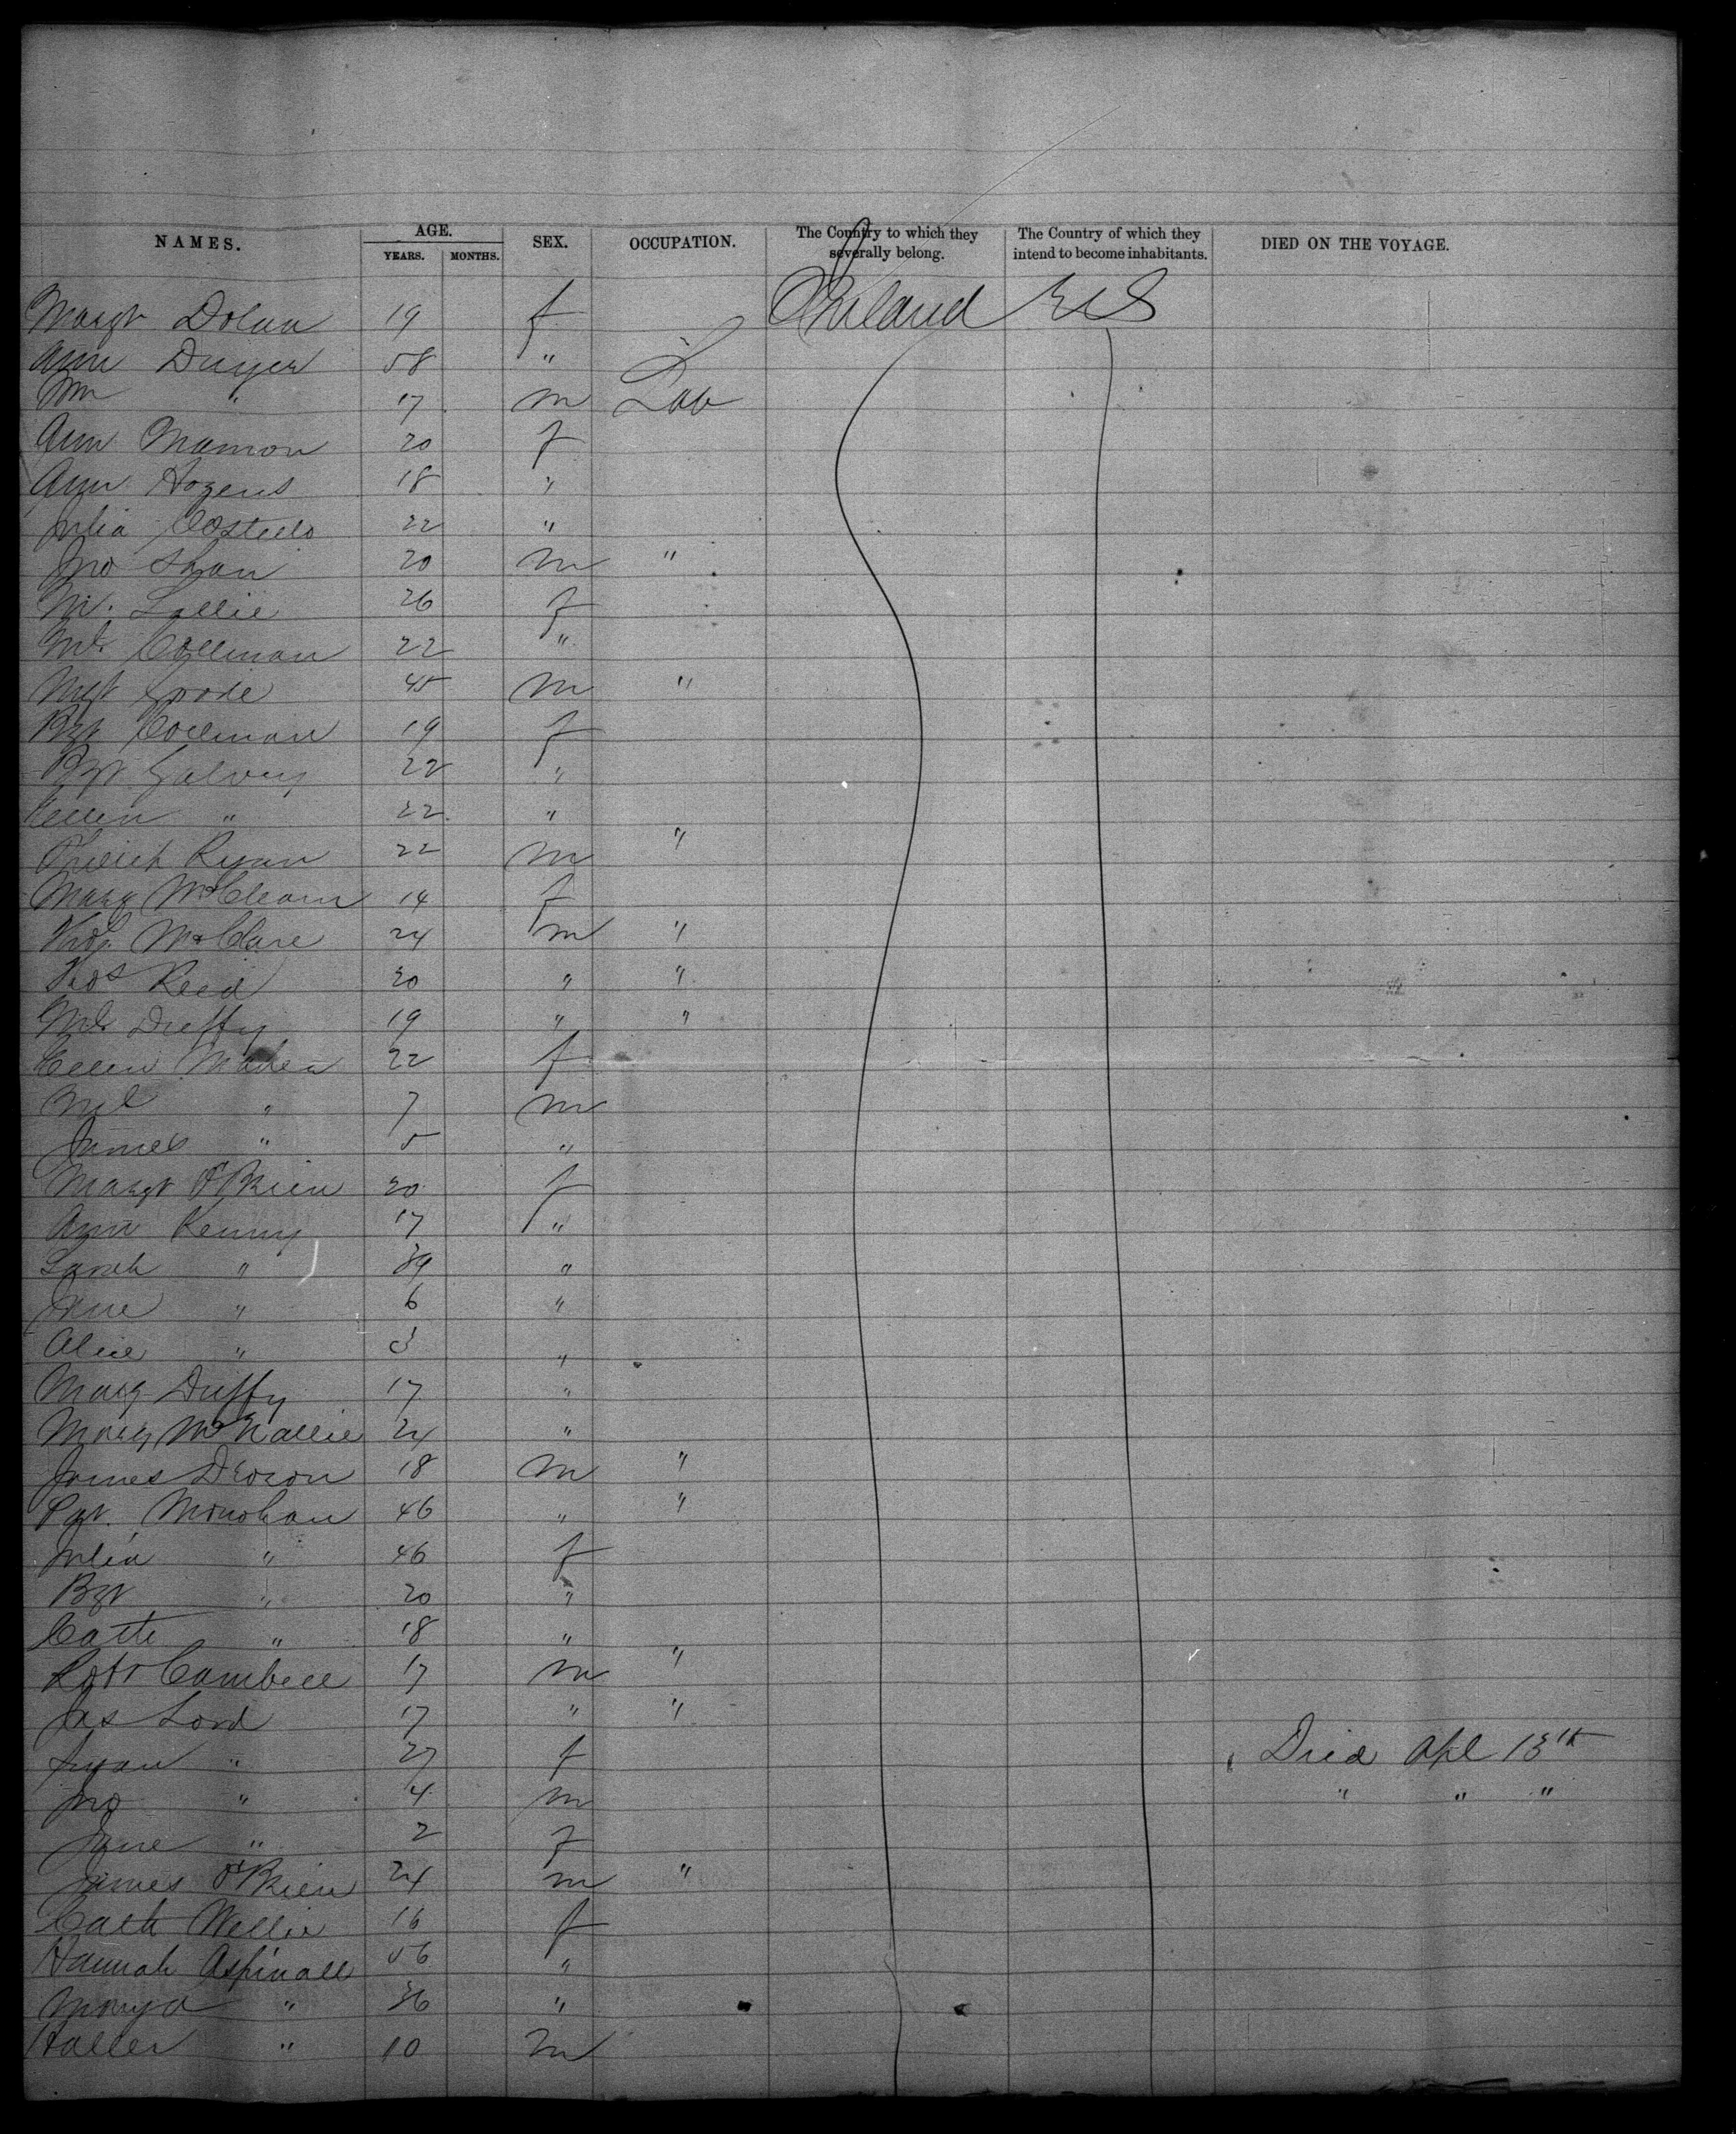 NAMES. AGE. SEX. OCCUPATION. The Country to which they severally belong. The Country of which they intend to become inhabitants. DIED ON THE VOYAGE.
YEARS. MONTHS.
Margt Dolan 19 f Ireland US
Ann Dwyer 58 "
Wm " 17 m Lab
Ann Mannon 20 f
Ann Hogens 18 "
Julia Costello 22 "
Jno Shan 20 m "
M. Lallie 26 f
Ml Collman 22 "
45 m "
Bgt Collman 19 f
Bgt Galvey 22 "
Ellen " 22 "
Ryan 22 m "
Mary McCleam 14 f
McClare 24 m "
Thos Reed 20 " "
Ml Duffy 19 " "
Ellen Maden 22 f
Ml " 7 m
James " 5 "
Margt O'Brien 20 f
Ann Kenny 17 "
Sarah " 39 "
Jane " 6 "
Alice " 3 "
Mary Duffy 17 "
Mary McNallie 24 "
James Dixon 18 m "
Pat. Monohan 46 " "
Julia " 46 f
Bgt " 20 "
Cath " 18 "
Robt Cambell 17 m "
Jas Lord 17 " "
Susan " 27 f Died Apl 13th
Jno " 4 m " " "
Jane " 2 f
James O'Brien 24 m "
Cath Wellie 16 f
Hannah Aspinall 56 "
" 36 "
" 10 m